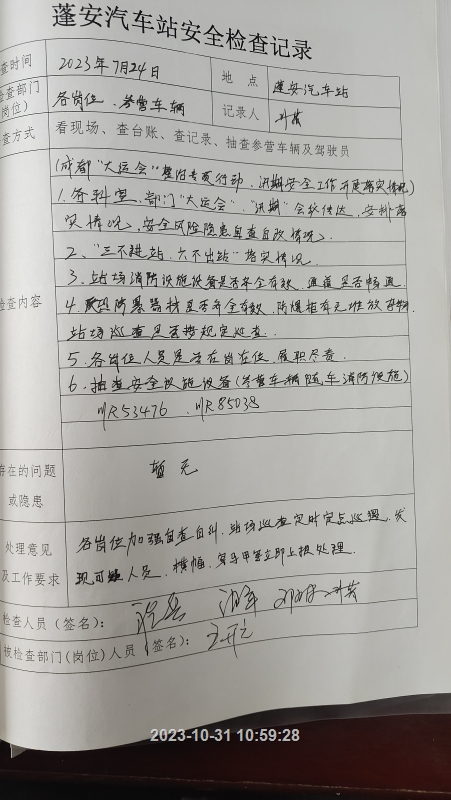 蓬安汽车站安全检查记录
查时间 2023年7月24日 地 点 蓬安汽车站
检查部门 各岗位、参营车辆 记录人
岗位)
查方式 看现场、查台账、查记录、抽查参营车辆及驾驶员
(成都“大运会”整治专项行动、汛期安全工作开展落实情况)
1、各科室、部门“大运会”、“汛期”会议传达、安排落
实情况、安全风险隐患自查自改情况、
2、“三不进站、六不出站”落实情况、
检查内容 3、站场消防设施设备是否齐全有效、通道是否畅通、
4、反恐防暴器材是否齐全有效、防爆柜有无堆放杂物、
站场巡查是否按规定巡查、
5、各岗位人员是否在岗在位、履职尽责
6、抽查安全设施设备(参营车辆随车消防设施)
川R53476、川R85038
存在的问题 暂无
或隐患
处理意见 各岗位加强自查自纠、站场巡查定时定点巡视、发
及工作要求 现可疑人员、横幅、穿马甲等立即上报处理、
检查人员(签名):
被检查部门(岗位)人员(签名):
2023-10-31 10:59:28